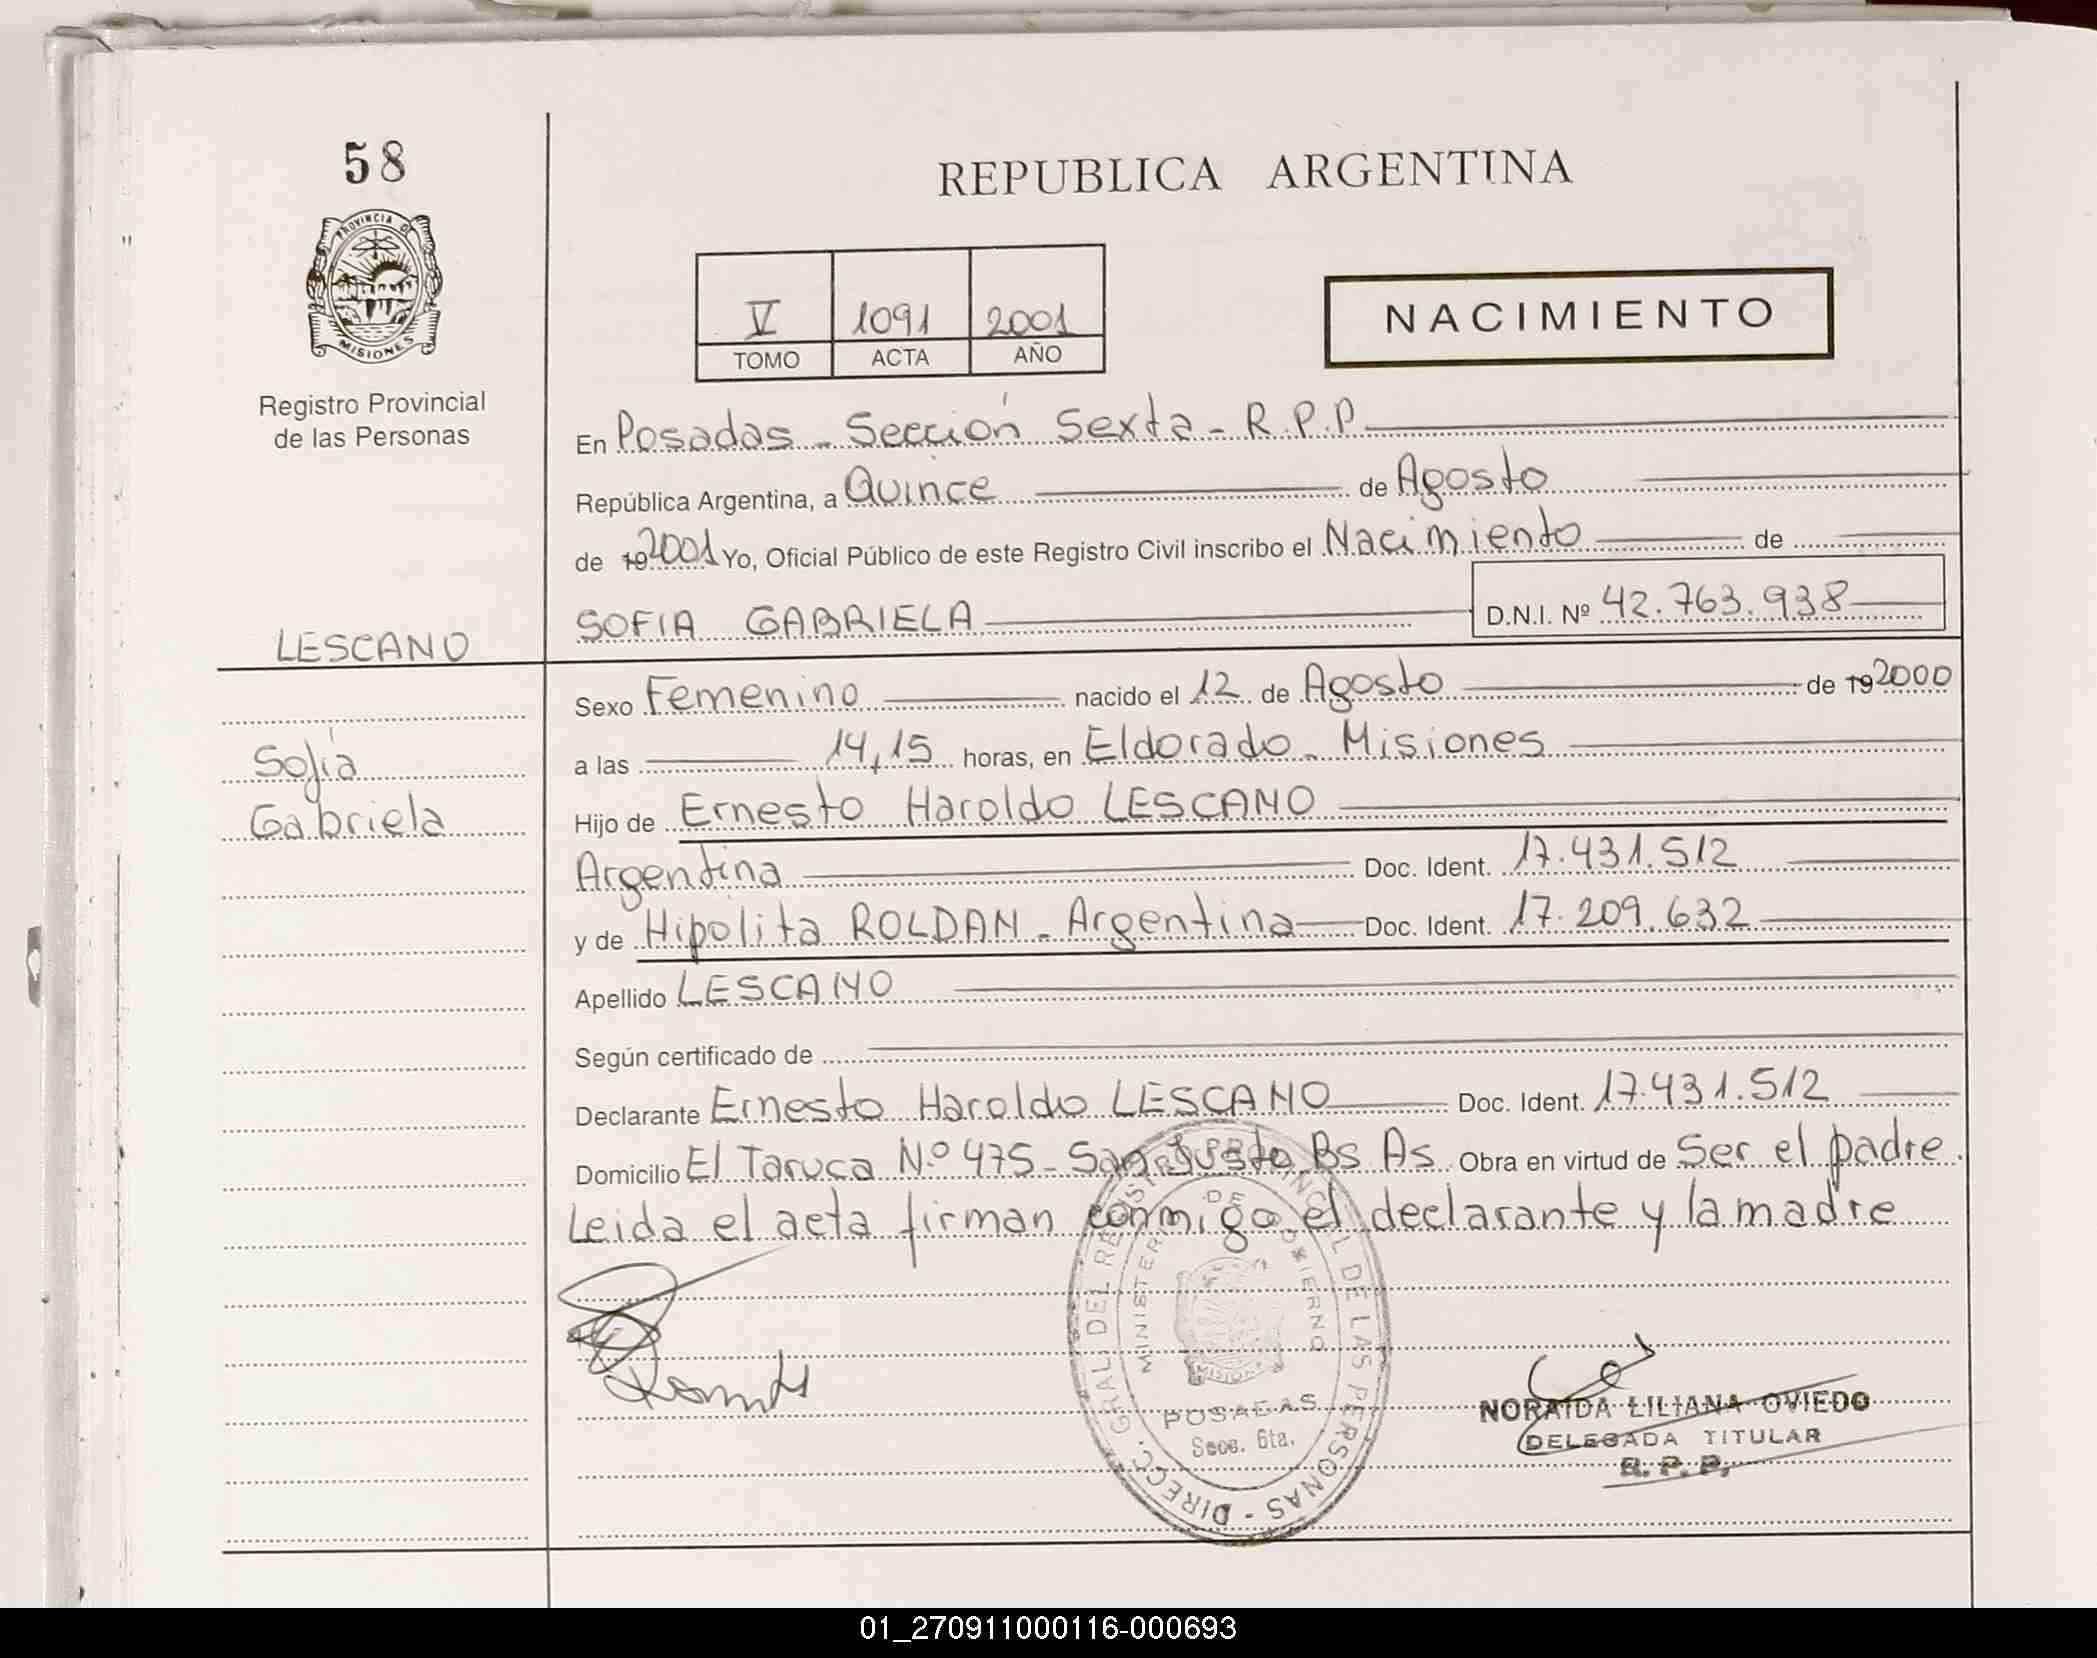 58
PROVINCIA DE
MISIONES
Registro Provincial
de las Personas
LESCANO
Sofía
Gabriela
REPUBLICA ARGENTINA
V 1091 2001
TOMO ACTA AÑO
NACIMIENTO
En Posadas - Sección Sexta - R.P.P.
República Argentina, a Quince de Agosto
de 19 2001 Yo, Oficial Público de este Registro Civil inscribo el Nacimiento de
SOFIA GABRIELA D.N.I. Nº 42.763.938
Sexo Femenino nacido el 12 de Agosto de 19 2000
a las 14,15 horas, en Eldorado - Misiones
Hijo de Ernesto Haroldo LESCANO
Argentina Doc. Ident. 17.431.512
y de Hipolita ROLDAN - Argentina Doc. Ident. 17.209.632
Apellido LESCANO
Según certificado de
Declarante Ernesto Haroldo LESCANO Doc. Ident. 17.431.512
Domicilio El Taruca Nº 475 - San Justo Bs As. Obra en virtud de Ser el padre.
Leida el acta firman conmigo el declarante y la madre
DIRECC. GRAL. DEL REGIST. PROVINCIAL DE LAS PERSONAS -
MINISTERIO DE GOBIERNO
MISIONES
POSADAS
Secc. 6ta.
NORAIDA LILIANA OVIEDO
DELEGADA TITULAR
R. P. P.
01_270911000116-000693